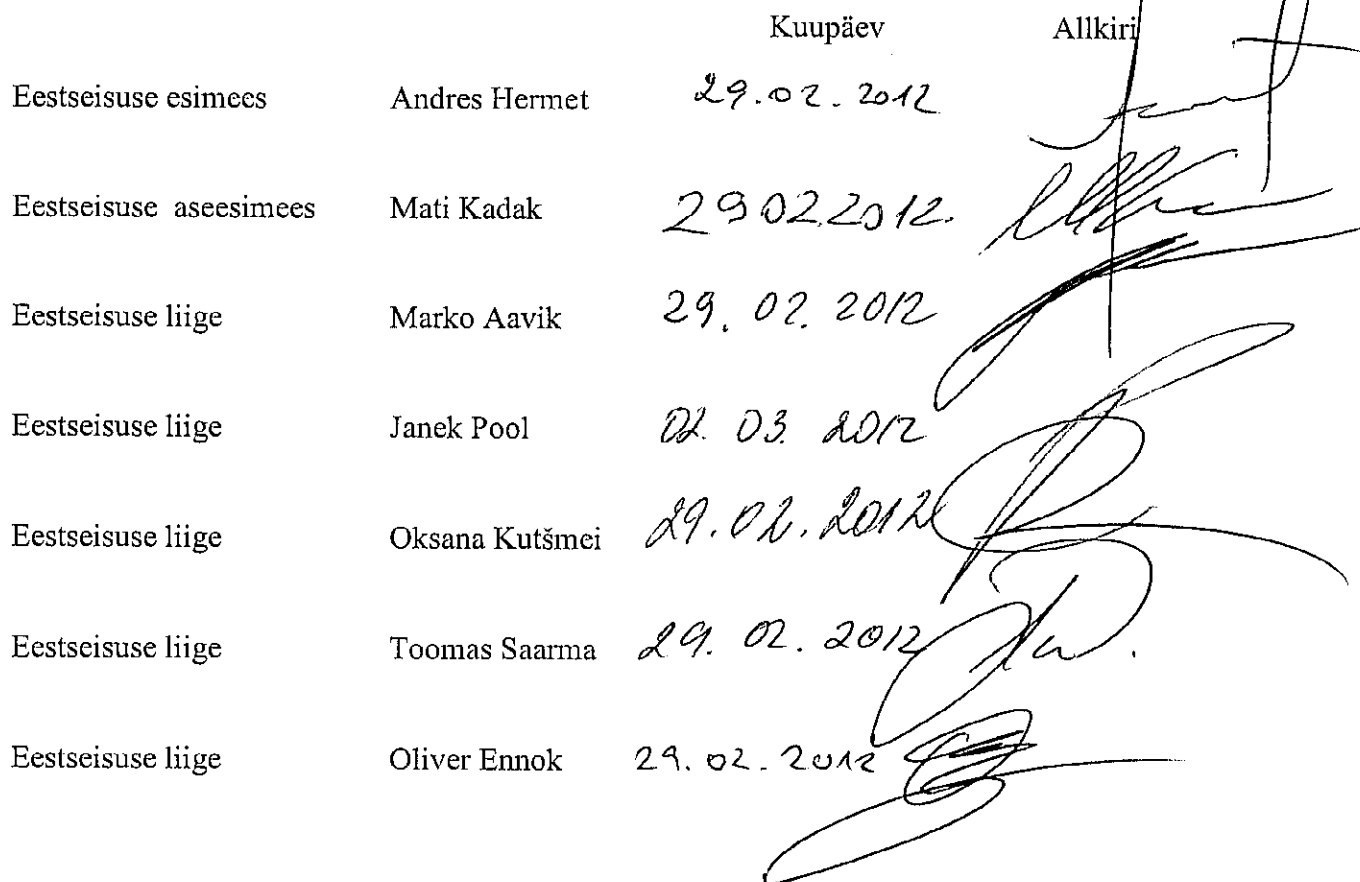 Kuupäev Allkiri
Eestseisuse esimees Andres Hermet 29.02.2012
Eestseisuse aseesimees Mati Kadak 29022012.
Eestseisuse liige Marko Aavik 29.02.2012
Eestseisuse liige Janek Pool 02.03.2012
Eestseisuse liige Oksana Kutšmei 29.02.2012
Eestseisuse liige Toomas Saarma 29.02.2012
Eestseisuse liige Oliver Ennok 29.02.2012